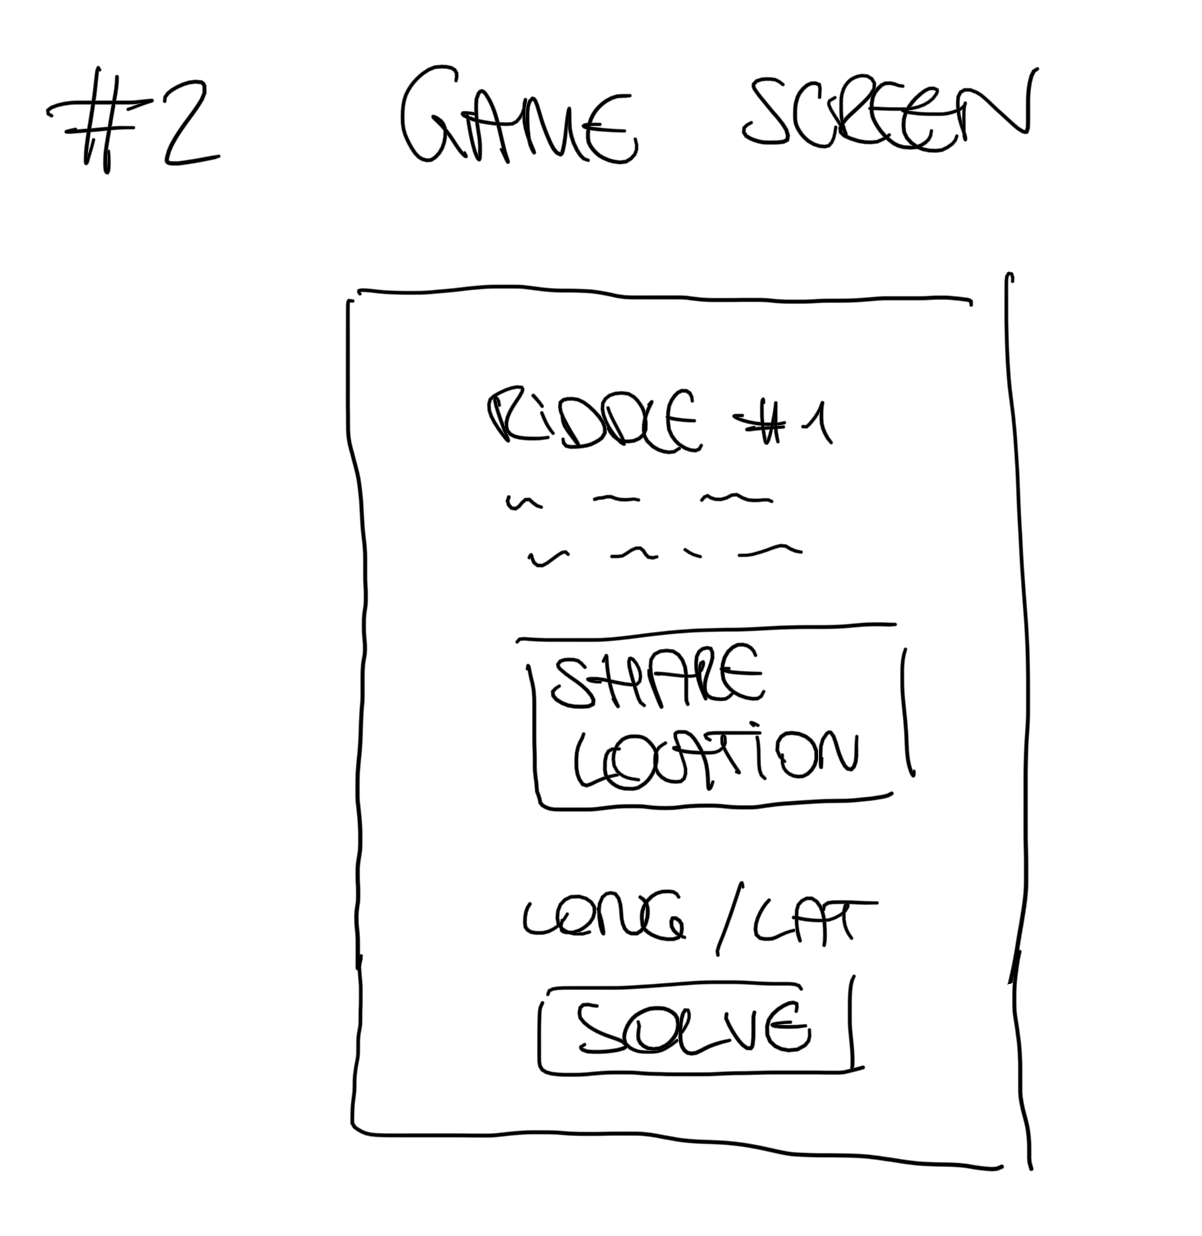 #2 GAME SCREEN
RIDDLE #1
SHARE
LOCATION
LONG / LAT
SOLVE